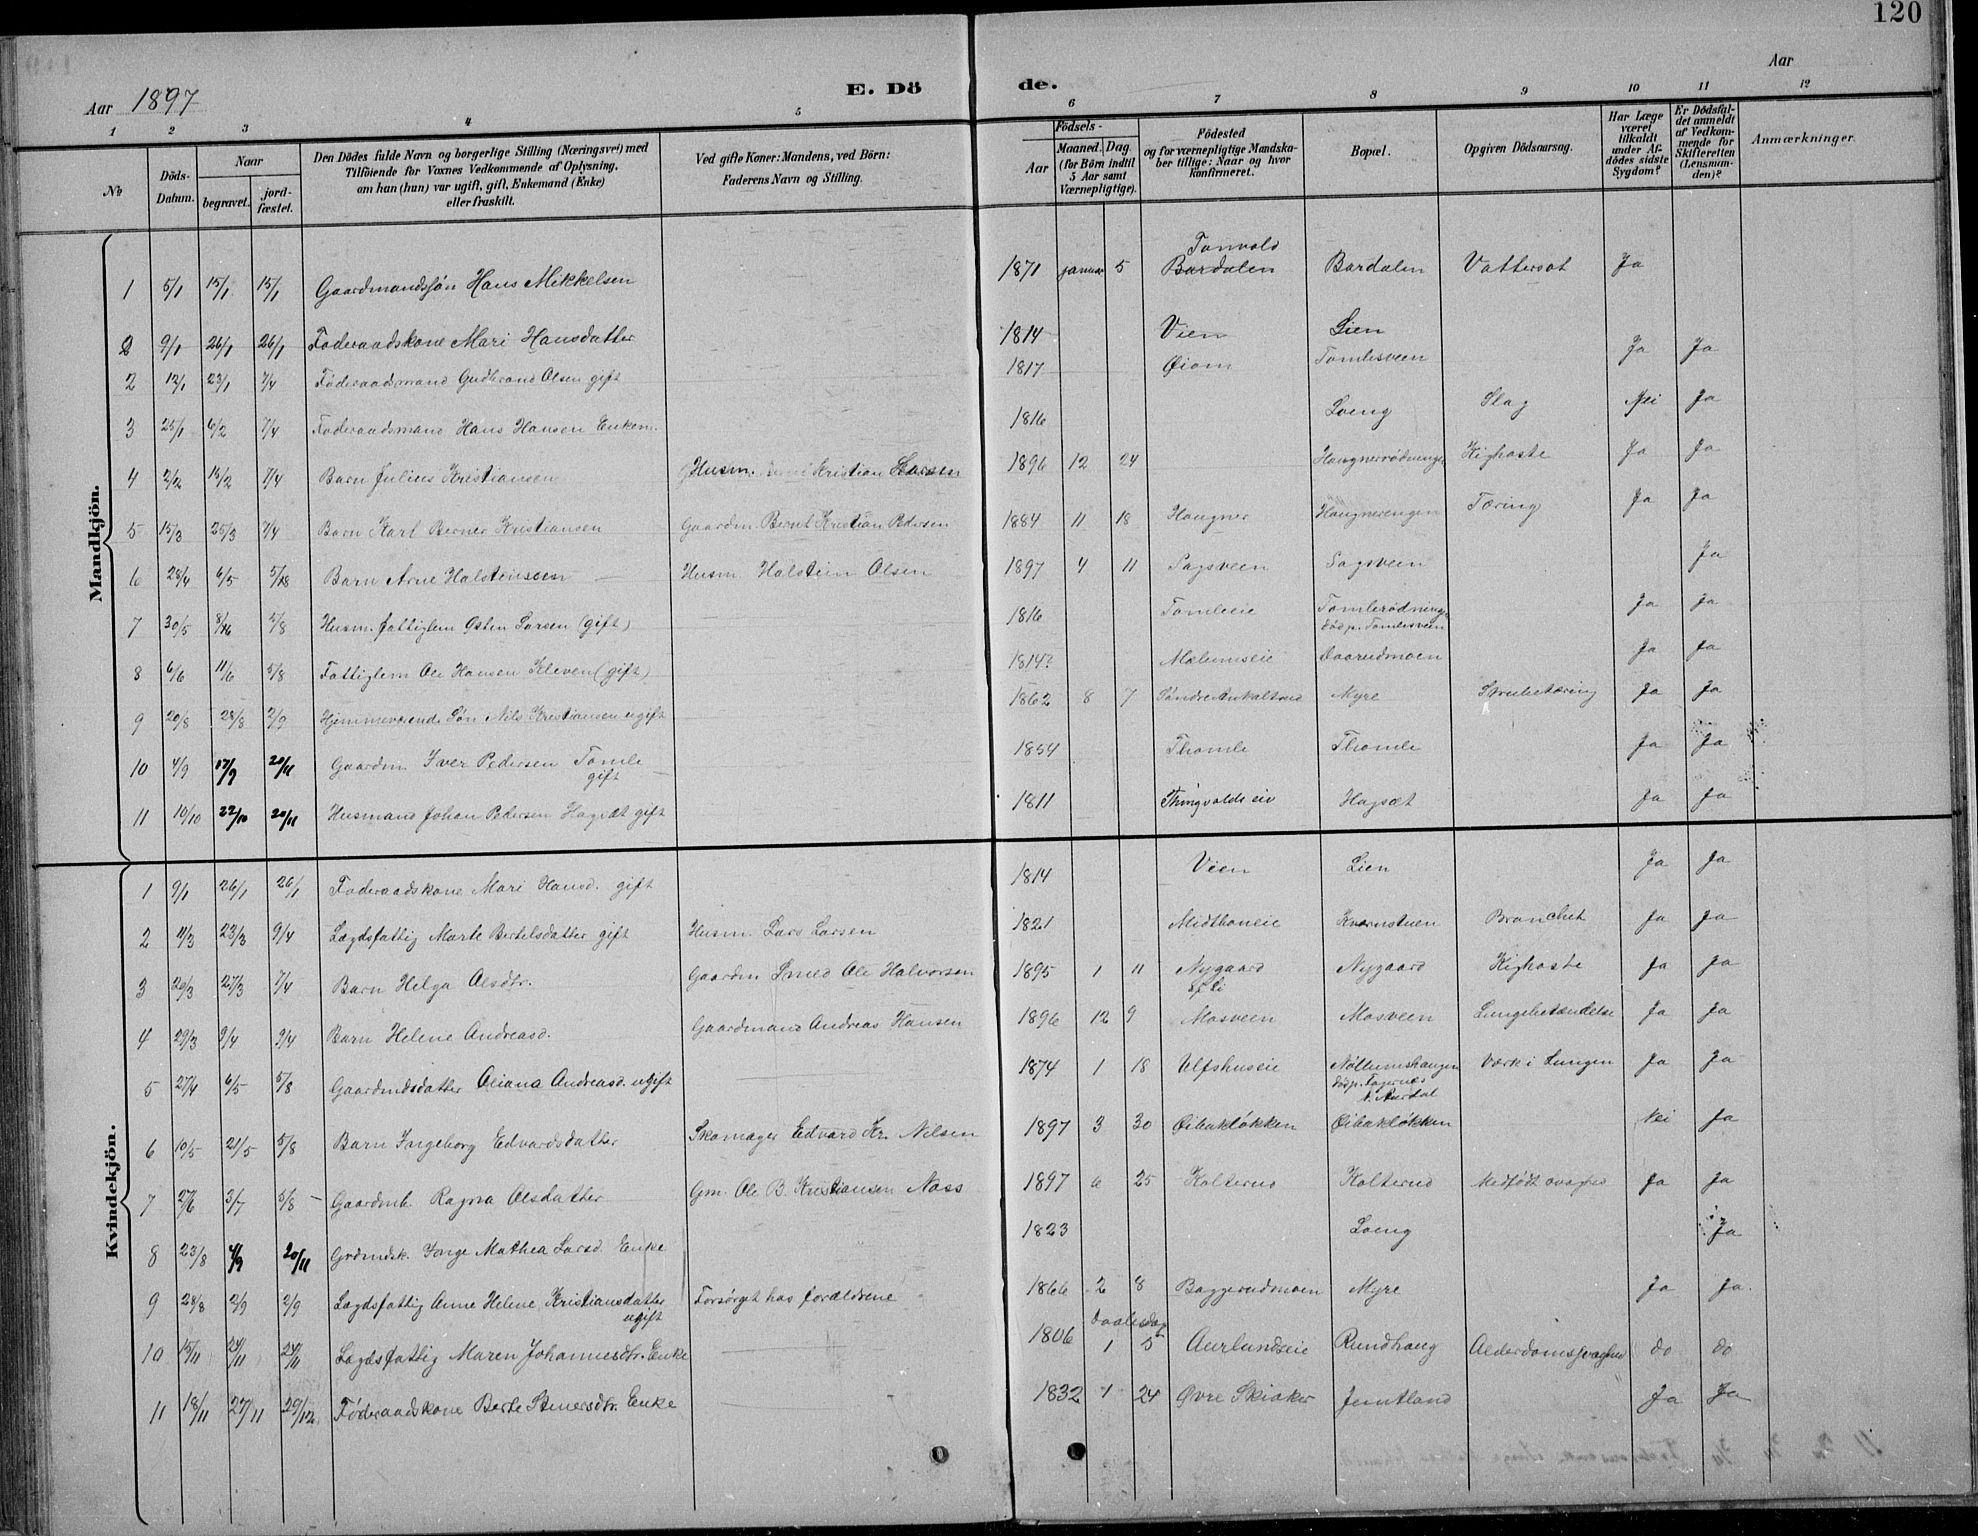 120
Aar 1897
E. Döde.
Aar
1 2 3 4 5 6 7 8 9 10 11 12
No
Döds-Datum.
Naar
begravet.
jord-fæstet.
Den Dödes fulde Navn og borgerlige Stilling (Næringsvei) med
Tilföiende for Voxnes Vedkommende af Oplysning,
om han (hun) var ugift, gift, Enkemand (Enke)
eller fraskilt.
Ved gifte Koner: Mandens, ved Börn:
Faderens Navn og Stilling.
Födsels-
Aar
Maaned. Dag.
(for Börn indtil
5 Aar samt
Værnepligtige).
Födested
og for værnepligtige Mandska-
ber tillige: Naar og hvor
konfirmeret.
Bopæl.
Opgiven Dödsaarsag.
Har Læge
været
tilkaldt
under Af-
dödes sidste
Sygdom?
Er Dödsfal-
det anmeldt
af Vedkom-
mende for
Skifteretten
(Lensman-
den)?
Anmærkninger.
Mandkjön.
1 5/1 15/1 15/1 Gaardmandssön Hans Mikkelsen 1871 januar 5 Tonvold Bardalen Bardalen Vattersot Ja
2 9/1 26/1 26/1 Foderaadskone Mari Hansdatter 1814 Vien Lien
2 12/1 23/1 7/4 Föderaadsmand Gudbrand Olsen gift 1817 Øiom Tomlesveen Ja Ja
3 25/1 6/2 7/4 Foderaadsmand Hans Hansen Enkem. 1816 Loeng Slag Nei Ja
4 2/2 13/2 7/4 Barn Julius Kristiansen Husm. Kristian Larsen 1896 12 24 Kighoste Ja Ja
5 15/3 25/3 7/4 Barn Karl Berner Kristiansen Gaardm. Bernt Kristian Pedersen 1884 11 18 Haugner Haugnerengen Tæring Ja Ja
6 28/4 6/5 5/8 Barn Arne Halsteinsen Husm. Halstein Olsen 1897 4 11 Sagsveen Sagsveen Ja
7 30/5 8/6 5/8 Husm. fattiglem Østen Larsen (gift) 1816 Tomleeie Tomlerødningen
dødsp. Tomlesveen Ja Ja
8 6/6 11/6 5/8 Fattiglem Ole Hansen Kleven (gift) 1814? Mælumseie Daarudmoen Ja Ja
9 20/8 28/8 2/9 Hjemmeværende Søn Nils Kristiansen ugift 1862 8 7 Myre Strubetæring Ja Ja
10 4/9 17/9 20/11 Gaardm. Iver Pedersen Tomle
gift 1854 Thomle Thomle Ja Ja
11 10/10 22/10 20/11 Husmand Johan Pedersen Hagsæt gift 1811 Thingvoldseie Hagsæt Ja Ja
Kvindekjön.
1 9/1 26/1 26/1 Foderaadskone Mari Hansd. gift 1814 Vien Lien Ja Ja
2 11/3 23/3 9/4 Lægdsfattig Marte Bertelsdatter gift Husm. Lars Larsen 1821 Midthoneie Kvernstuen Bronchit Ja Ja
3 20/3 27/3 7/4 Barn Helga Olsdtr. Gaardm. Smed Ole Halvorsen 1895 1 11 Nygaard
Nygaard Kighoste Ja Ja
4 29/3 9/4 9/4 Barn Helene Andreasd. Gaardmand Andreas Hansen 1896 12 9 Mosveen Mosveen Lungebetændelse Ja Ja
5 27/4 6/5 5/8 Gaardmdsdatter Oliana Andreasd. ugift 1874 1 18 Ulfshuseie Nöllumshaugen
dödsp. Fagernes
N. Aurdal Værk i Lungen Ja Ja
6 10/5 21/5 5/8 Barn Ingeborg Edvardsdatter Skomager Edvard Kr. Nilsen 1897 3 30 Øibakløkken Øibakløkken Nei Ja
7 27/6 3/7 5/8 Gaardmb. Ragna Olsdatter Gm. Ole B. Kristiansen Noss 1897 6 25 Kolterud Kolterud Medfødt svaghed Ja Ja
8 23/8 4/9 20/11 Grdmdsk. Inge Mathea Larsd. Enke 1823 Loeng Ja
9 28/8 2/9 2/9 Lægdsfattig Anne Helene Kristiansdatter
ugift Forsørget hos forældrene 1866 2 8 Baggerudmoen Myre Ja Ja.
10 15/11 24/11 24/11 Lægdsfattig Maren Johannesdtr. Enke 1806 daabsdag
1 5 Aurlundseie Rundhaug Alderdomssvaghed do do
11 18/11 27/11 29/12 Föderaadskone Berte Stenersdtr. Enke 1832 1 24 Øvre Skiaker Jemtland Ja Ja